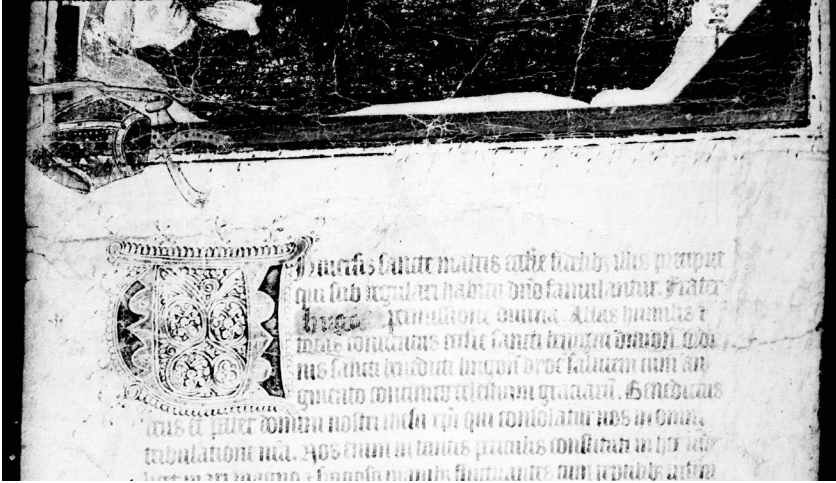 Universis sancte matris ecclie fidelibꝫ illis precipue
qui sub regulari habitu dño famulantur. Frater
hugo permissione divina. Abbas humilis ⁊
totus conventus ecclie sancti benigni divioñ. ordi
nis sancti benedicti lingoñ dioc̄ salutem cum au
gmento continuo celestium graciarū. Benedictus
deus et pater domini nostri ihesu xp̄i qui consolatur nos in omni
tribulatione nr̄a. Nos enim in tantis periculis constituti in hoc
mari magno ⁊ spacioso manibꝫ fluctuantes cum